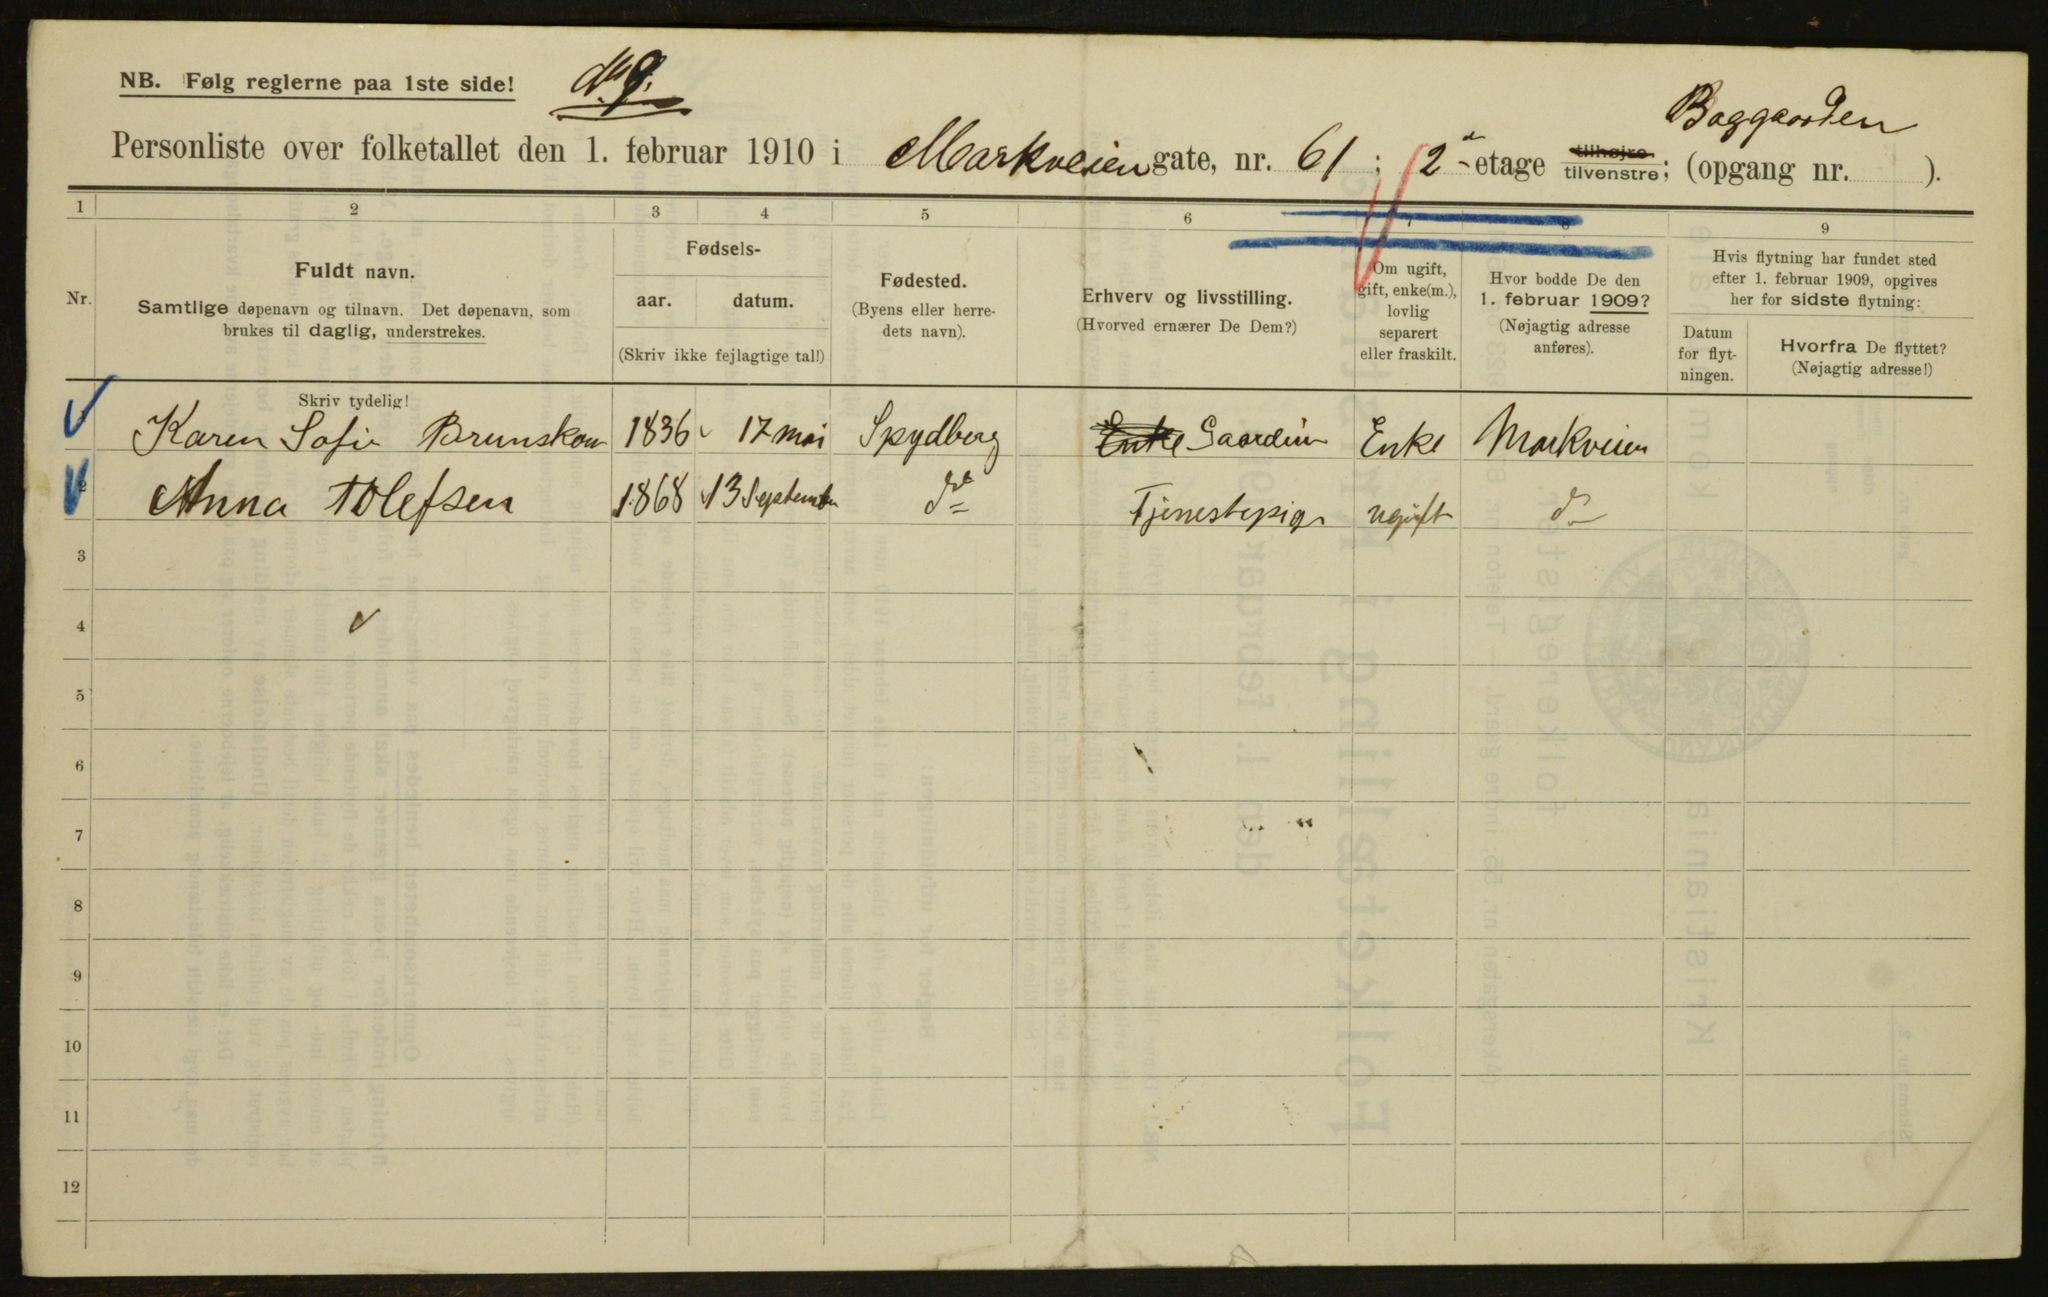 NB. Følg reglerne paa 1ste side!
№ 9.
Baggaarden
Personliste over folketallet den 1. februar 1910 i Markveien gate, nr. 61; 2- etage tilhøjre tilvenstre; (opgang nr. ).
1 2 3 4 5 6 7 8 9
Nr.
Fuldt navn.
Samtlige døpenavn og tilnavn. Det døpenavn, som
brukes til daglig, understrekes.
Fødsels-
aar. datum.
(Skriv ikke fejlagtige tal!)
Fødested.
(Byens eller herre-
dets navn).
Erhverv og livsstilling.
(Hvorved ernærer De Dem?)
Om ugift,
gift, enke(m.),
lovlig
separert
eller fraskilt.
Hvor bodde De den
1. februar 1909?
(Nøjagtig adresse
anføres).
Hvis flytning har fundet sted
efter 1. februar 1909, opgives
her for sidste flytning:
Datum
for flyt-
ningen.
Hvorfra De flyttet?
(Nøjagtig adresse!)
Skriv tydelig!
Karen Sofie Brunskow 1836 17 mai Spydberg Enke Gaardein Enke Markveien
2 Anna Tolefsen 1868 13 September do Tjenestepige ugift do
3
4
5
6
7
8
9
10
11
12